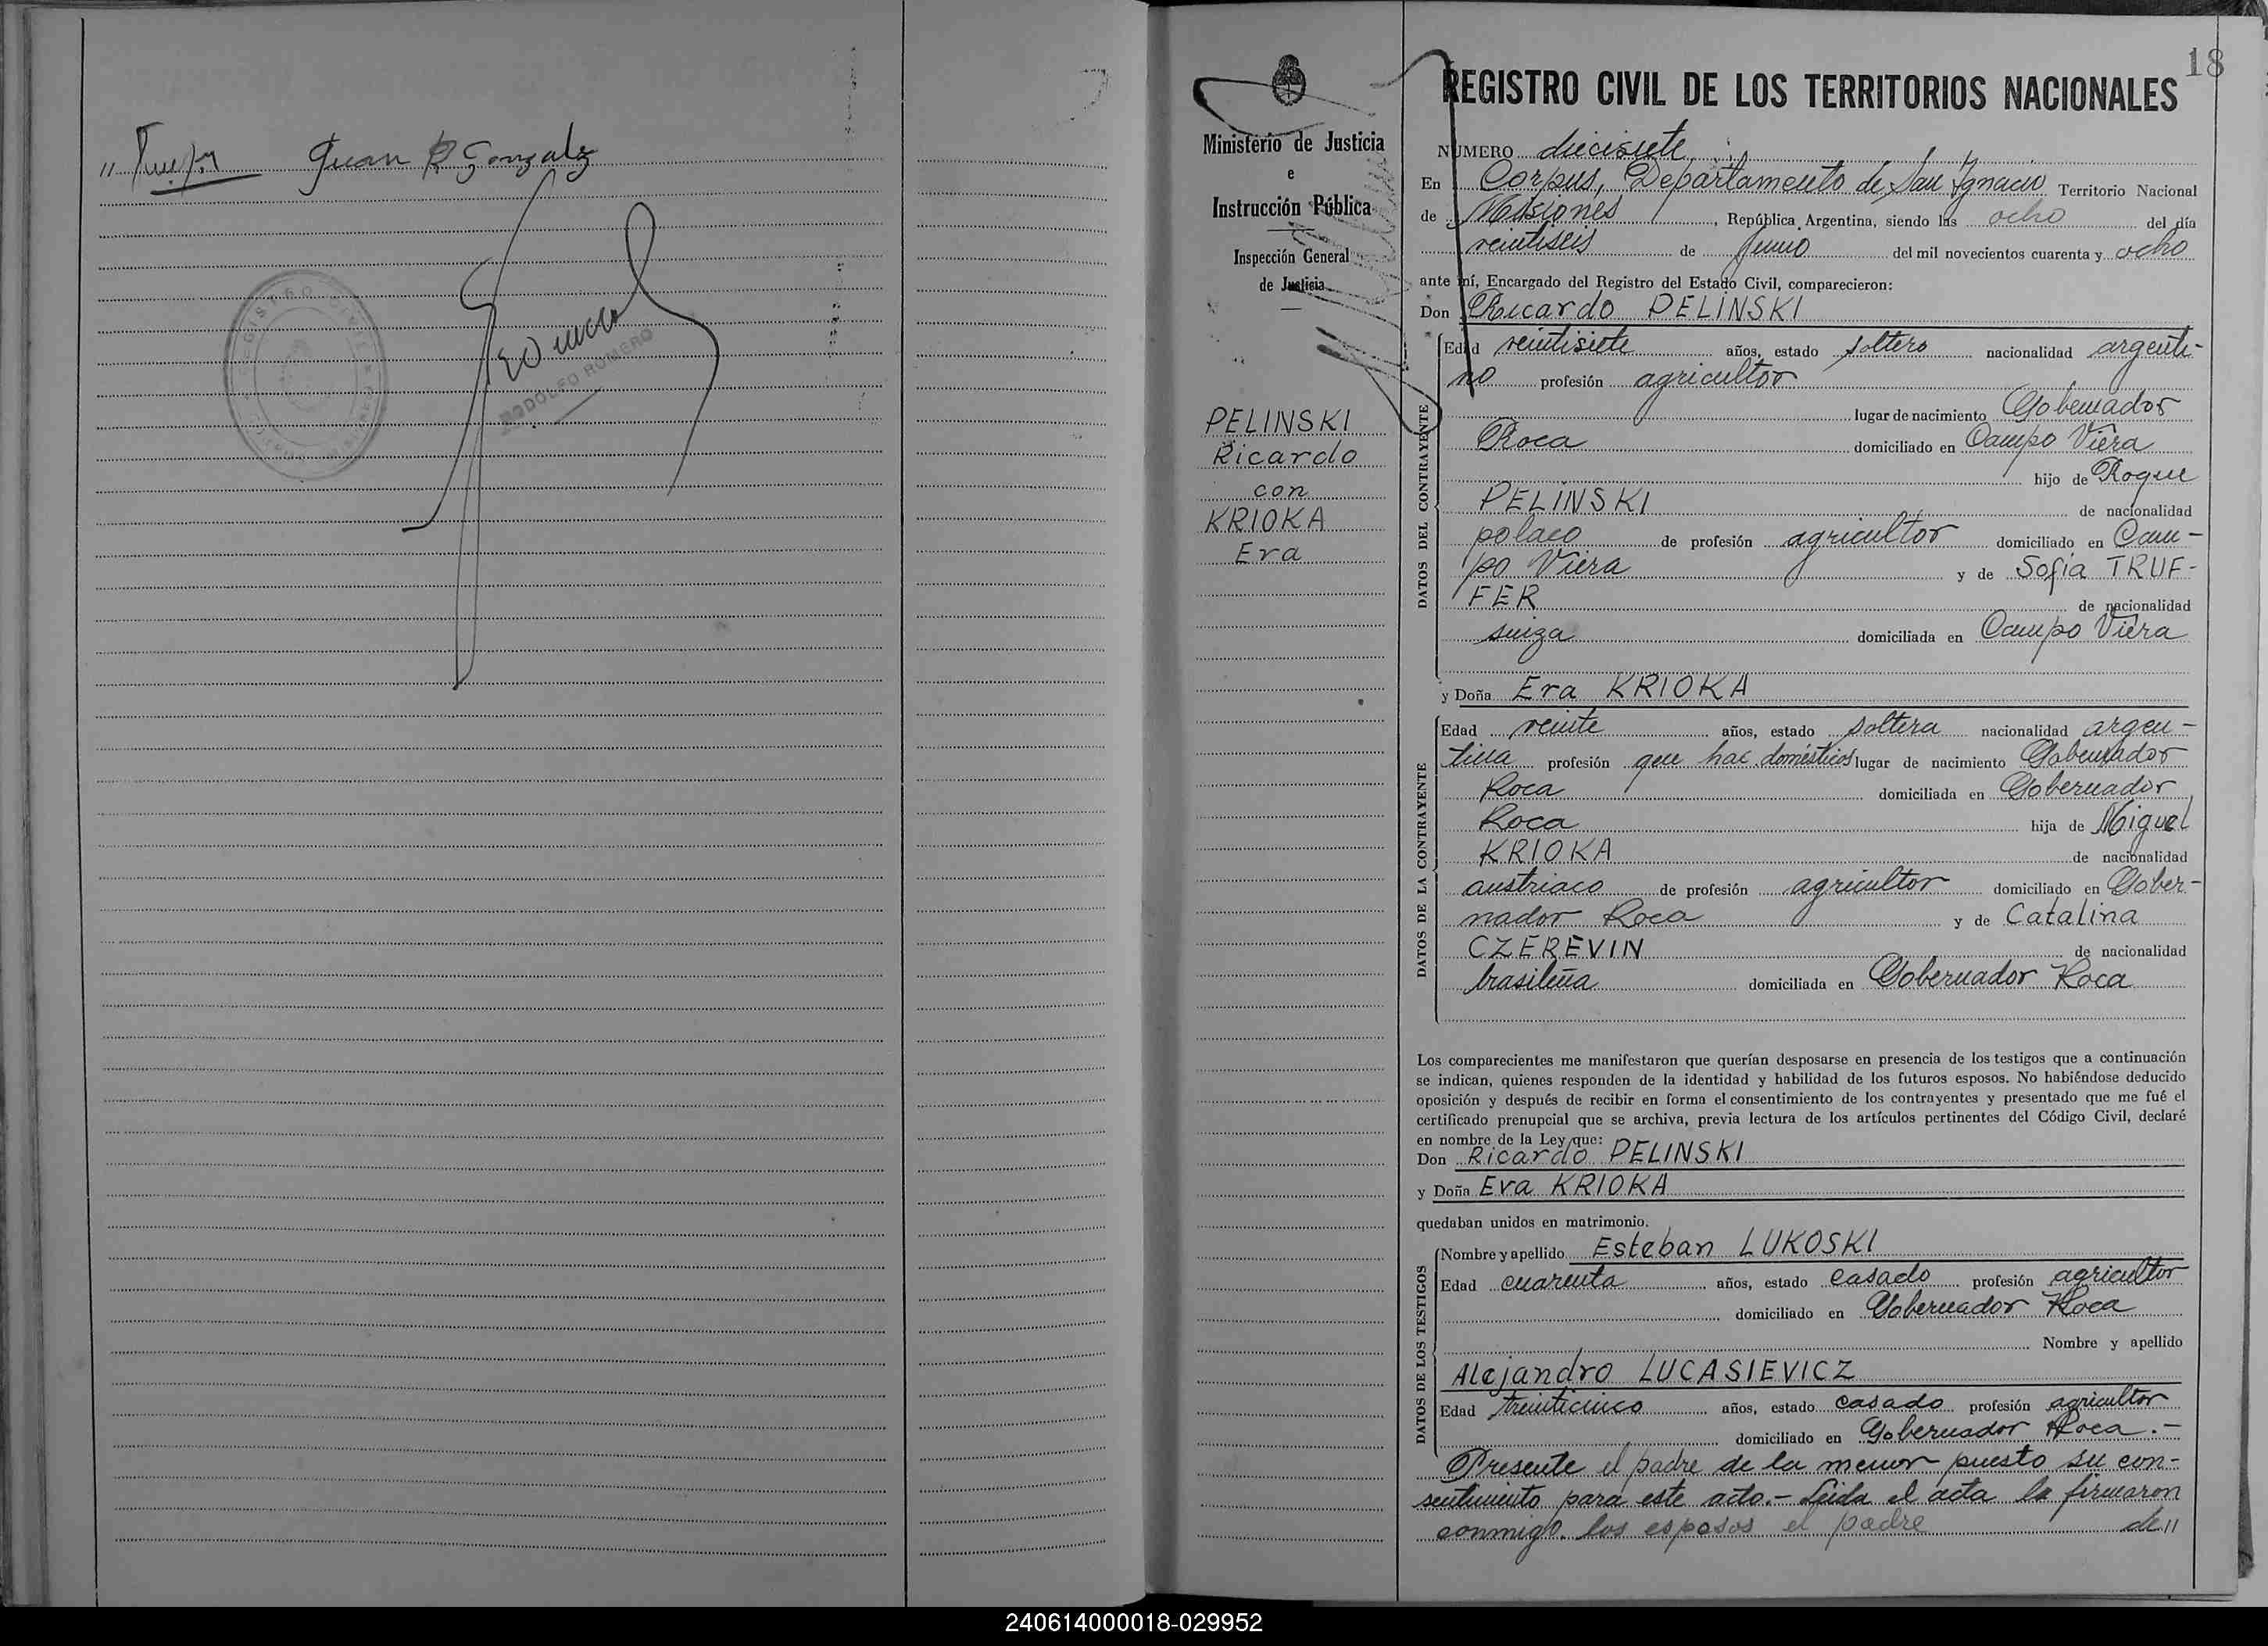 Juan R Gonzalez
RODOLFO ROMERO
18
REGISTRO CIVIL DE LOS TERRITORIOS NACIONALES
Ministerio de Justicia
e
Instrucción Pública
Inspección General
de Justicia
PELINSKI
Ricardo
con
KRIOKA
Eva
NUMERO diecisiete
En Corpus, Departamento de San Ignacio Territorio Nacional
de Misiones, República Argentina, siendo las ocho del día
veintiseis de Junio del mil novecientos cuarenta y ocho
ante mí, Encargado del Registro del Estado Civil, comparecieron:
Don Ricardo PELINSKI
DATOS DEL CONTRAYENTE
Edad veintisiete años, estado soltero nacionalidad argenti-
no profesión agricultor
lugar de nacimiento Gobernador
Roca domiciliado en Campo Viera
hijo de Roque
PELINSKI de nacionalidad
polaco de profesión agricultor domiciliado en Cam-
po Viera y de Sofia TRUF-
FER de nacionalidad
suiza domiciliada en Campo Viera
y Doña Eva KRIOKA
DATOS DE LA CONTRAYENTE
Edad veinte años, estado soltera nacionalidad argen-
tina profesión que hac. domésticos lugar de nacimiento Gobernador
Roca domiciliada en Gobernador
Roca hija de Miguel
KRIOKA de nacionalidad
austriaco de profesión agricultor domiciliado en Gober-
nador Roca y de Catalina
CZEREVIN de nacionalidad
brasileña domiciliada en Gobernador Roca
Los comparecientes me manifestaron que querían desposarse en presencia de los testigos que a continuación
se indican, quienes responden de la identidad y habilidad de los futuros esposos. No habiéndose deducido
oposición y después de recibir en forma el consentimiento de los contrayentes y presentado que me fué el
certificado prenupcial que se archiva, previa lectura de los artículos pertinentes del Código Civil, declaré
en nombre de la Ley que:
Don Ricardo PELINSKI
y Doña Eva KRIOKA
quedaban unidos en matrimonio.
DATOS DE LOS TESTIGOS
Nombre y apellido Esteban LUKOSKI
Edad cuarenta años, estado casado profesión agricultor
domiciliado en Gobernador Roca
Nombre y apellido
Alejandro LUCASIEVICZ
Edad treinticinco años, estado casado profesión agricultor
domiciliado en Gobernador Roca.-
Presente el padre de la menor puesto su con-
sentimiento para este acto.- Leida el acta la firmaron
conmigo los esposos el padre de //
240614000018-029952